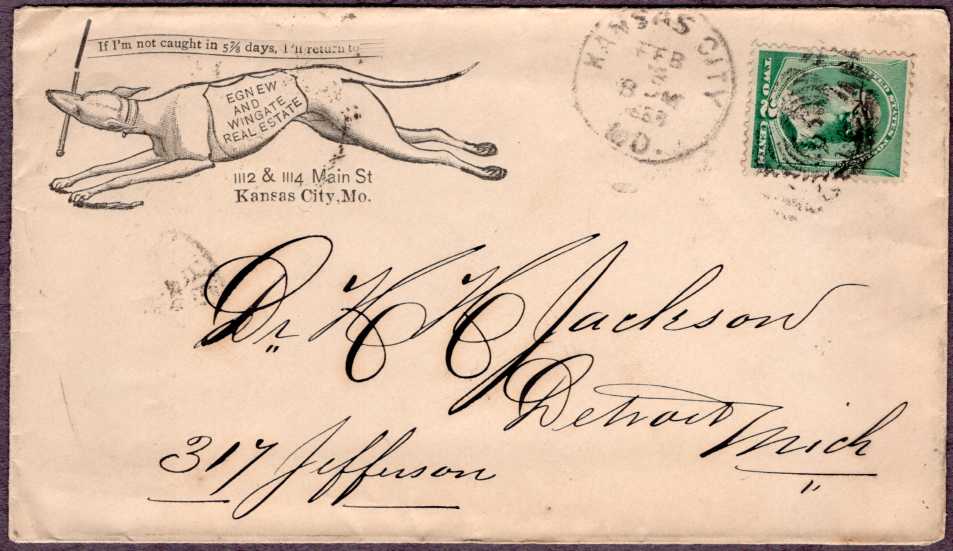 If I'm not caught in 5⅞ days, I'll return to
EGNEW
AND
WINGATE
REAL ESTATE
1112 & 1114 Main St
Kansas City, Mo.
KANSAS CITY
FEB
MO.
TWO 2 CENTS
UNITED STATES
Dr. H H Jackson
Detroit
Mich
317 Jefferson